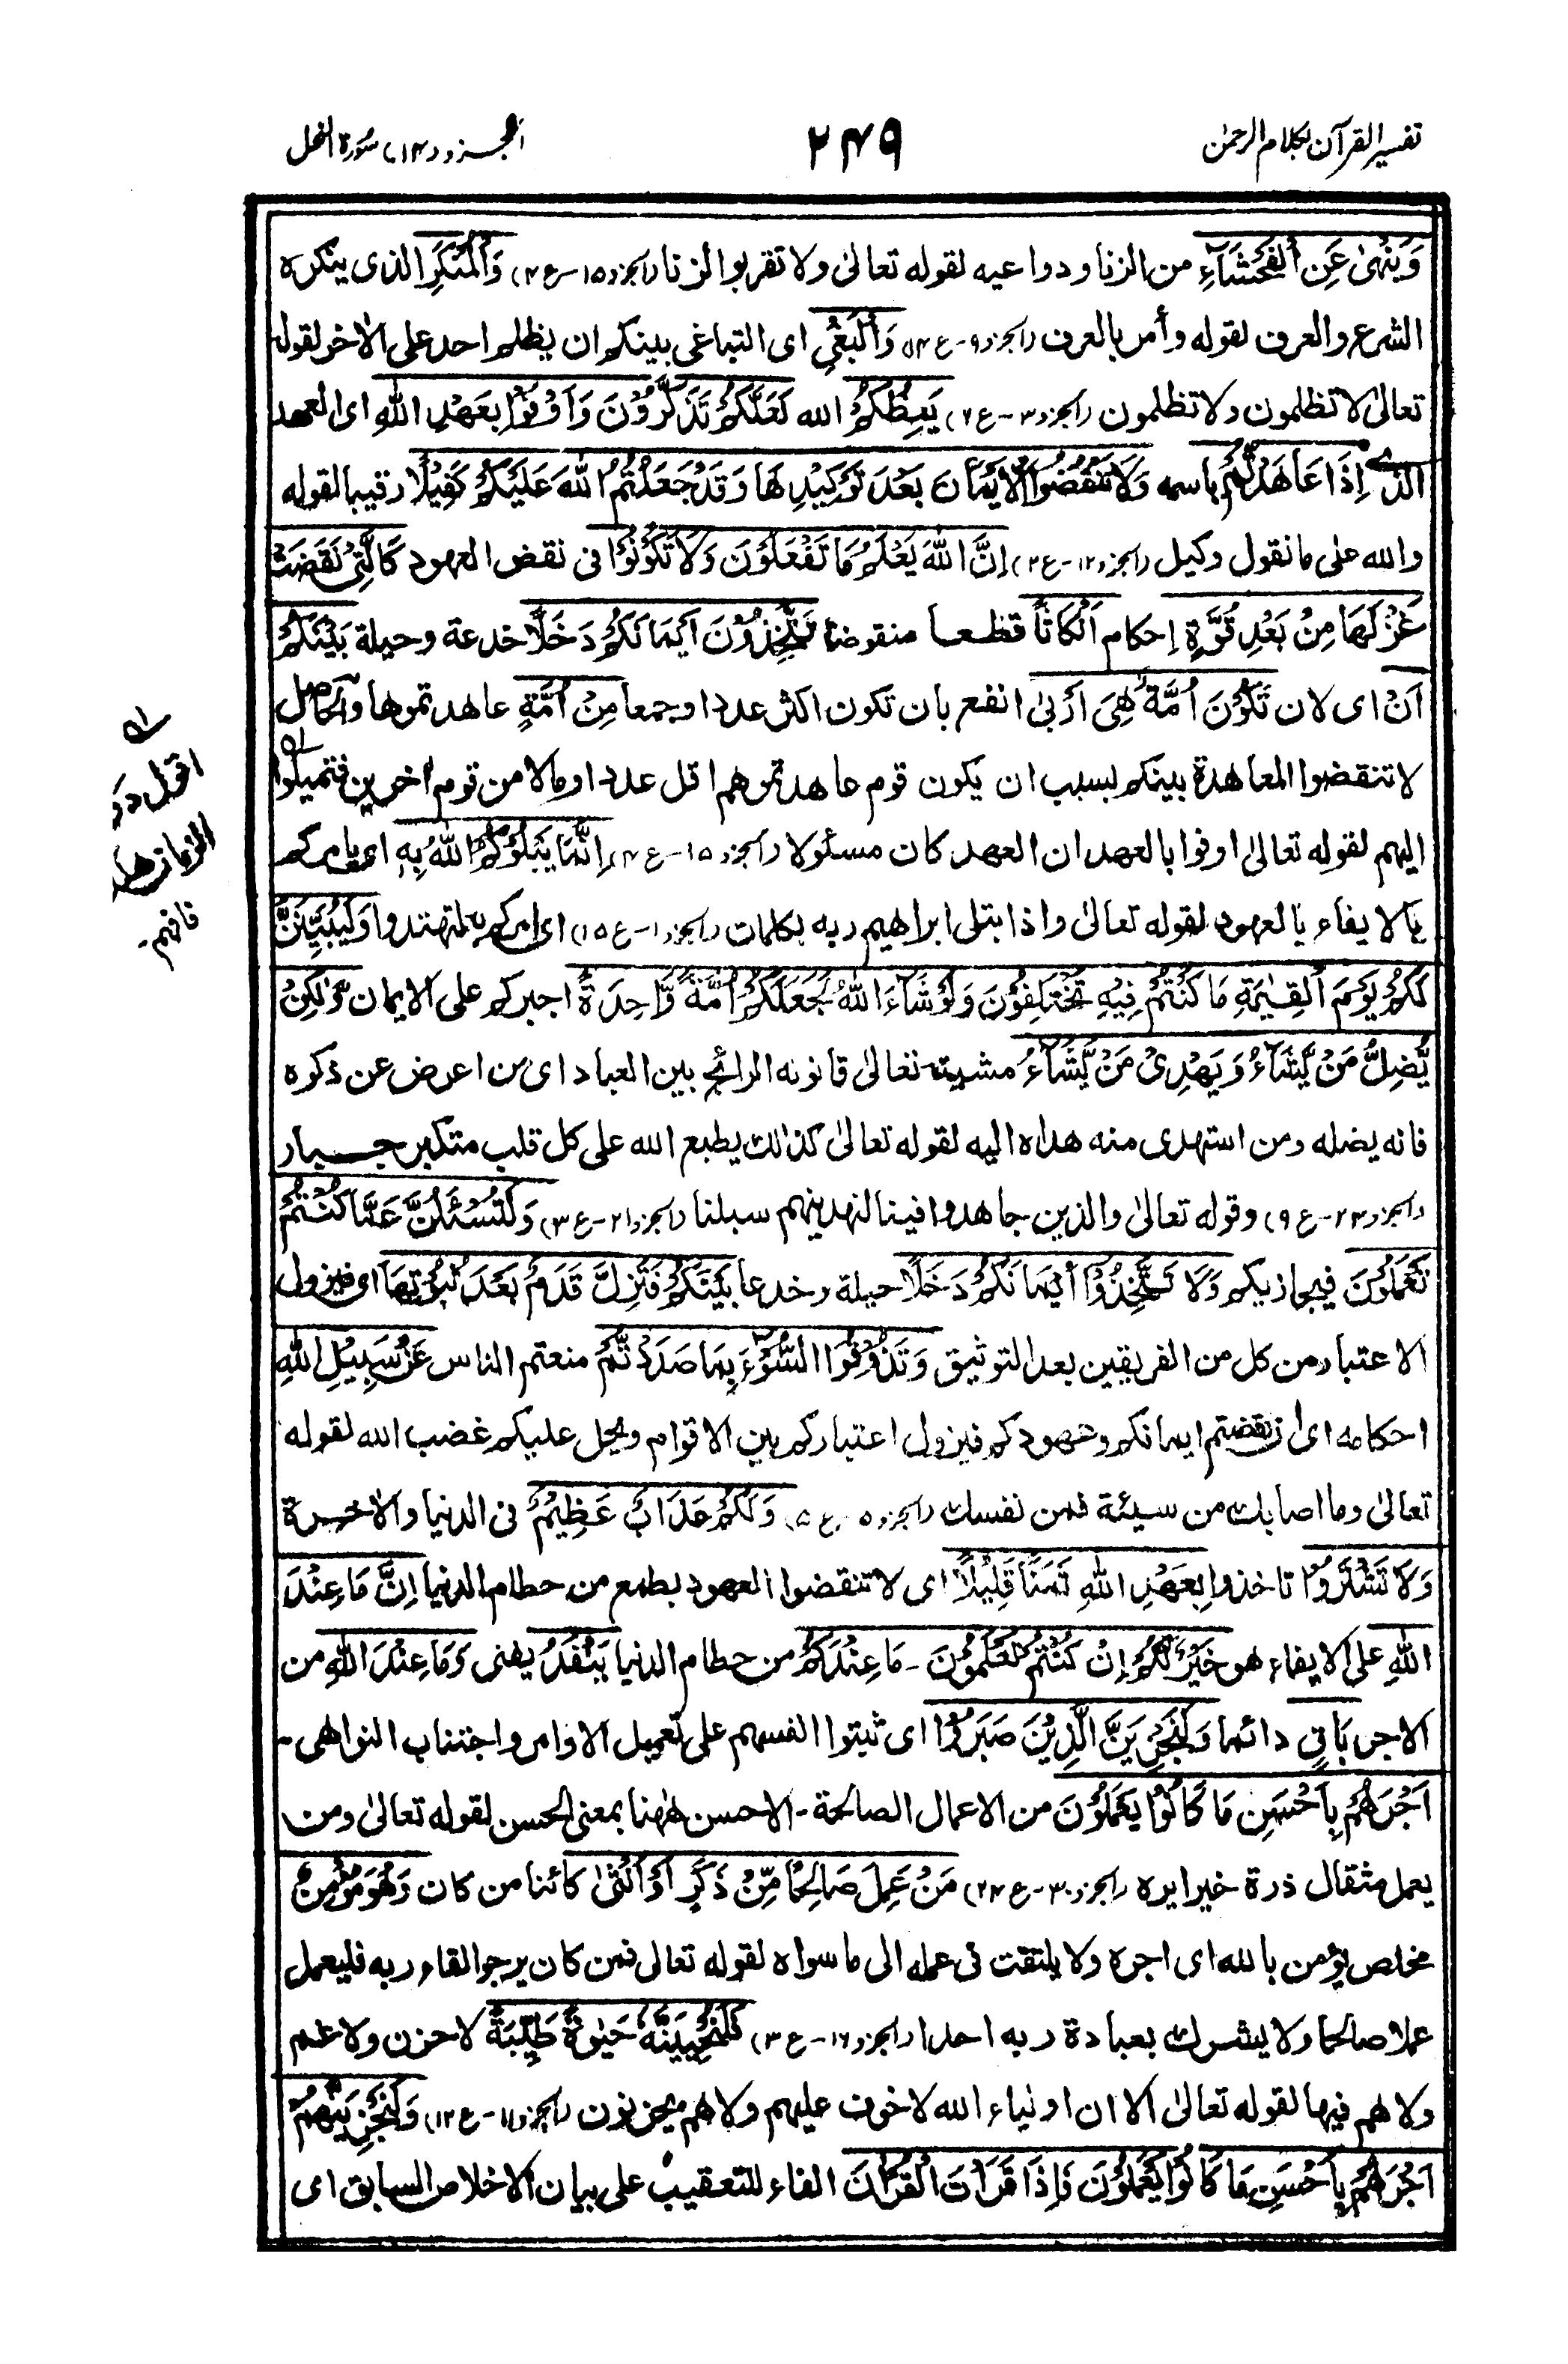 تفسیر القرآن بکلام الرحمٰن
۲۴۹
الجزو (۱۴) سورة النحل
وَيَنْهٰى عَنِ الْفَحْشَآءِ من الزنا ودواعيه لقوله تعالىٰ ولا تقربوا الزنا (الجزو ۱۵-ع۴) وَالْمُنْكَرِ الذى ينكره
الشرع والعرف لقوله وأمر بالعرف (الجزو ۹-ع۱۴) وَالْبَغْيِ اى التباغى بينكم ان يظلم احد على الاٰخر لقوله
تعالىٰ لا تظلمون ولا تظلمون (الجزو ۳-ع۶) يَعِظُكُمْ الله لَعَلَّكُمْ تَذَكَّرُوْنَ وَاَوْفُوْا بِعَهْدِ اللّٰهِ اى العهد
الذے اِذَا عَاهَدْتُّمْ باسمه وَلَا تَنْقُضُوا الْاَيْمَانَ بَعْدَ تَوْكِيْدِهَا وَقَدْ جَعَلْتُمُ اللّٰهَ عَلَيْكُمْ كَفِيْلًا رقيبا لقوله
والله على ما نقول وكيل (الجزو ۱۲-ع۲) اِنَّ اللّٰهَ يَعْلَمُ مَا تَفْعَلُوْنَ وَلَا تَكُوْنُوْا فى نقض العهود كَالَّتِىْ نَقَضَتْ
غَزْلَهَا مِنْ بَعْدِ قُوَّةٍ اِحكام اَنْكَاثًا قطعا منقوضا تَتَّخِذُوْنَ اَيْمَانَكُمْ دَخَلًا خدعة وحيلة بَيْنَكُمْ
اَنْ اى لان تَكُوْنَ اُمَّةٌ هِىَ اَرْبىٰ انفع بان تكون اكثر عددا وجمعا مِنْ اُمَّةٍ عاهدتموها والحاصل
لا تنقضوا المعاهدة بينكم بسبب ان يكون قوم عاهدتموهم اقل عددا ومالا من قوم اٰخرين فتميلوا
اليهم لقوله تعالىٰ اوفوا بالعهد ان العهد كان مسئولا (الجزو ۱۵-ع۴) اِنَّمَا يَبْلُوْكُمُ اللّٰهُ بِهِ اى يامركم
بالايفاء بالعهود لقوله تعالىٰ واذا ابتلى ابراهيم ربه بكلمات (الجزو ۱-ع۱۵) اى امركم به لتهتدوا وَلَيُبَيِّنَنَّ
لَكُمْ يَوْمَ الْقِيٰمَةِ مَا كُنْتُمْ فِيْهِ تَخْتَلِفُوْنَ وَلَوْ شَآءَ اللّٰهُ لَجَعَلَكُمْ اُمَّةً وَّاحِدَةً اجبركم على الايمان وَّلٰكِنْ
يُّضِلُّ مَنْ يَّشَآءُ وَيَهْدِىْ مَنْ يَّشَآءُ مشيته تعالىٰ قانونه الرائج بين العباد اى من اعرض عن ذكره
فانه يضله ومن استهدى منه هداه اليه لقوله تعالىٰ كذالك يطبع الله على كل قلب متكبر جبار
(الجزو ۲۴-ع۹) وقوله تعالىٰ والذين جاهدوا فينا لنهدينهم سبلنا (الجزو ۲۱-ع۳) وَلَتُسْئَلُنَّ عَمَّا كُنْتُمْ
تَعْمَلُوْنَ فيجازيكم وَلَا تَتَّخِذُوْا اَيْمَانَكُمْ دَخَلًا حيلة وخدعا بَيْنَكُمْ فَتَزِلَّ قَدَمٌ بَعْدَ ثُبُوْتِهَا اى فيزول
الاعتبار من كل من الفريقين بعد التوثيق وَتَذُوْقُوا السُّوْٓءَ بِمَا صَدَدْتُّمْ منعتم الناس عَنْ سَبِيْلِ اللّٰهِ
احكامه اى ان نقضتم ايمانكم وعهودكم فيزول اعتباركم بين الاقوام ويحل عليكم غضب الله لقوله
تعالىٰ وما اصابك من سيئة فمن نفسك (الجزو ۵-ع۵) وَلَكُمْ عَذَابٌ عَظِيْمٌ فى الدنيا والاٰخرة
وَلَا تَشْتَرُوْا تاخذوا بِعَهْدِ اللّٰهِ ثَمَنًا قَلِيْلًا اى لا تنقضوا العهود بطمع من حطام الدنيا اِنَّ مَا عِنْدَ
اللّٰهِ على الايفاء هو خَيْرٌ لَّكُمْ اِنْ كُنْتُمْ تَعْلَمُوْنَ - مَا عِنْدَكُمْ من حطام الدنيا يَنْفَدُ يفنى وَمَا عِنْدَ اللّٰهِ من
الاجر بَاقٍ دائما وَلَنَجْزِيَنَّ الَّذِيْنَ صَبَرُوْا اى ثبتوا انفسهم على تعميل الاوامر واجتناب النواهى-
اَجْرَهُمْ بِاَحْسَنِ مَا كَانُوْا يَعْمَلُوْنَ من الاعمال الصالحة - الاحسن ههنا بمعنى الحسن لقوله تعالىٰ ومن
يعمل مثقال ذرة خيرا يره (الجزو ۳۰-ع۲۴) مَنْ عَمِلَ صَالِحًا مِّنْ ذَكَرٍ اَوْ اُنْثىٰ كائنا من كان وَهُوَ مُؤْمِنٌ
مخلص يؤمن بالله اى اجره ولا يلتفت فى عمله الى ما سواه لقوله تعالى فمن كان يرجوا لقاء ربه فليعمل
عملا صالحا ولا يشرك بعبادة ربه احدا (الجزو ۱۶-ع۳) فَلَنُحْيِيَنَّهٗ حَيٰوةً طَيِّبَةً لا حزن ولا غم
ولا هم فيها لقوله تعالىٰ الا ان اولياء الله لا خوف عليهم ولا هم يحزنون (الجزو ۱۱-ع۱۲) وَلَنَجْزِيَنَّهُمْ
اَجْرَهُمْ بِاَحْسَنِ مَا كَانُوْا يَعْمَلُوْنَ فَاِذَا قَرَاْتَ الْقُرْاٰنَ الفاء للتعقيب على بيان الاخلاص السابق اى
اقول
فافهم-